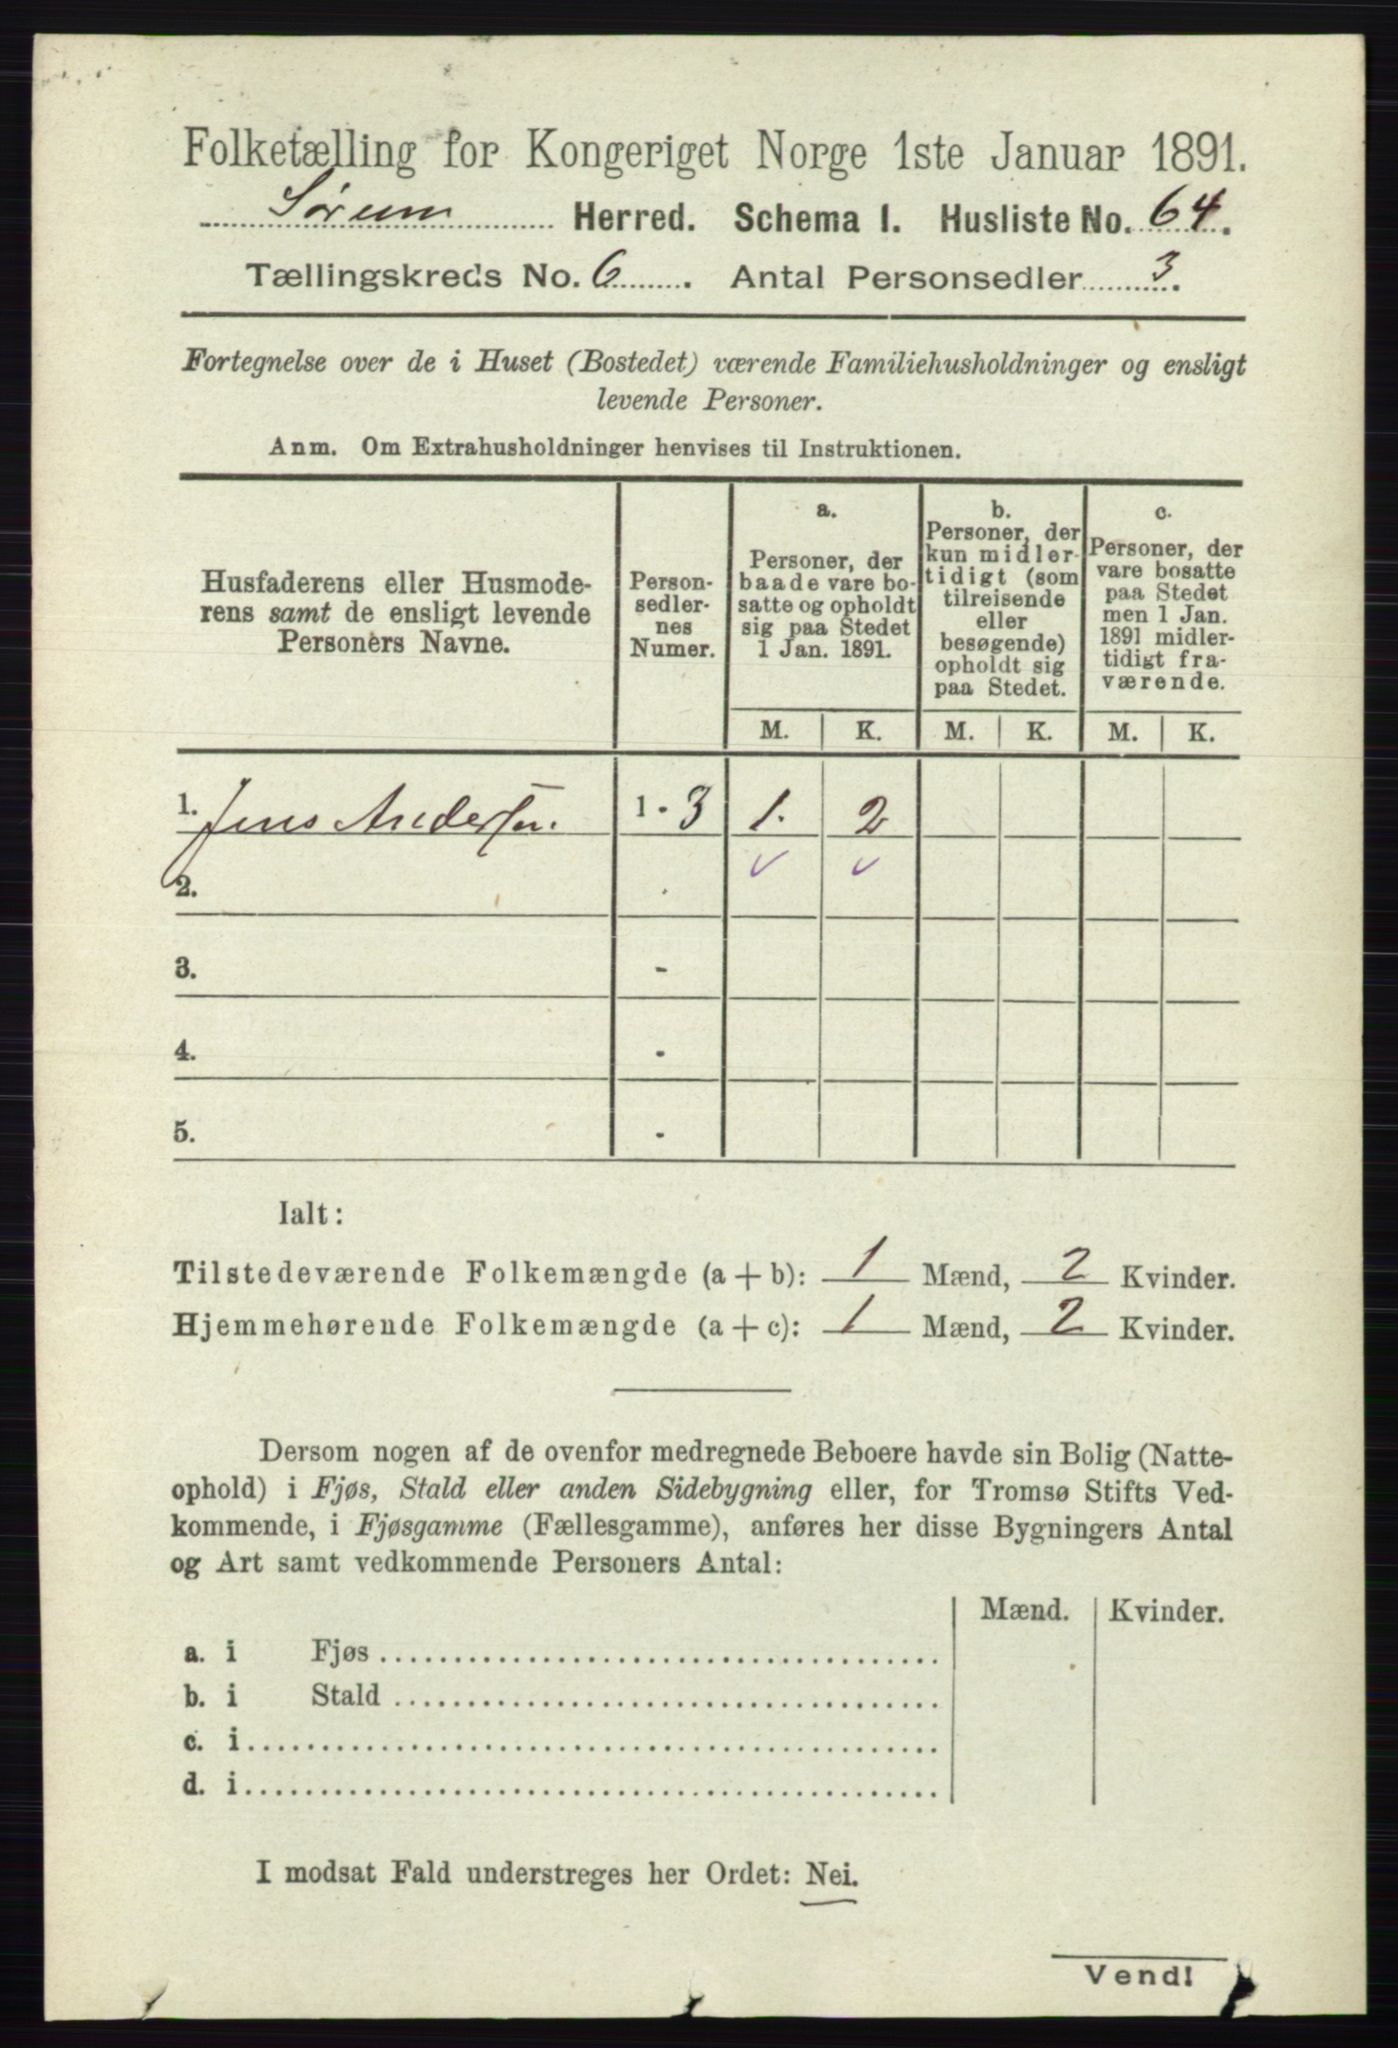 Folketælling for Kongeriget Norge 1ste Januar 1891.
Sørum Herred. Schema I. Husliste No. 64.
Tællingskreds No. 6. Antal Personsedler 3.
Fortegnelse over de i Huset (Bostedet) værende Familiehusholdninger og ensligt
levende Personer.
Anm. Om Extrahusholdninger henvises til Instruktionen.
Husfaderens eller Husmode-
rens samt de ensligt levende
Personers Navne.
Person-
sedler-
nes
Numer.
a.
Personer, der
baade vare bo-
satte og opholdt
sig paa Stedet
1 Jan. 1891.
b.
Personer, der
kun midler-
tidigt (som
tilreisende
eller
besøgende)
opholdt sig
paa Stedet.
c.
Personer, der
vare bosatte
paa Stedet
men 1 Jan.
1891 midler-
tidigt fra-
værende.
M. K. M. K. M. K.
1. Jens Andersen. 1 - 3 1. 2
2. -
3. -
4. -
5. -
Ialt:
Tilstedeværende Folkemængde (a + b): 1 Mænd, 2 Kvinder.
Hjemmehørende Folkemængde (a + c): 1 Mænd, 2 Kvinder.
Dersom nogen af de ovenfor medregnede Beboere havde sin Bolig (Natte-
ophold) i Fjøs, Stald eller anden Sidebygning eller, for Tromsø Stifts Ved-
kommende, i Fjøsgamme (Fællesgamme), anføres her disse Bygningers Antal
og Art samt vedkommende Personers Antal:
Mænd. Kvinder.
a. i Fjøs
b. i Stald
c. i
d. i
I modsat Fald understreges her Ordet: Nei.
Vend!